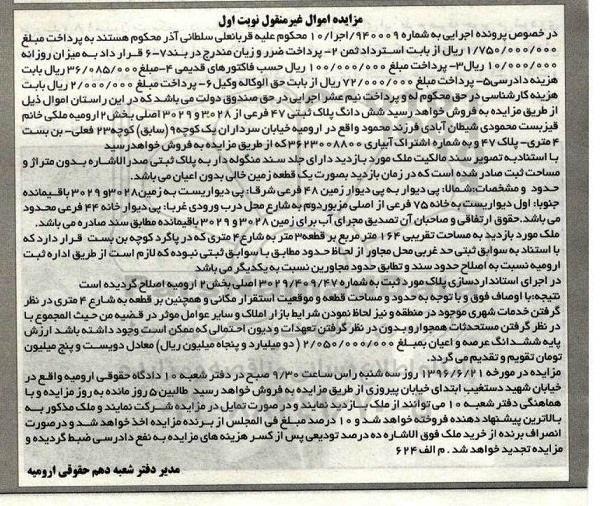 مزایده اموال غیرمنقول نوبت اول
در خصوص پرونده اجرایی به شماره ۹۴۰۰۰۹/اجرا/۱۰ محکوم علیه قربانعلی سلطانی آذر محکوم هستند به پرداخت مبلغ
۱/۷۵۰/۰۰۰/۰۰۰ ریال از بابت استرداد ثمن ۲- پرداخت ضرر و زیان مندرج در بند ۷-۶ قرار داد به میزان روزانه
۱۰/۰۰۰/۰۰۰ ریال۳- پرداخت مبلغ ۱۰۰/۰۰۰/۰۰۰ ریال حسب فاکتورهای قدیمی ۴-مبلغ ۳۶/۰۸۵/۰۰۰ ریال بابت
هزینه دادرسی۵- پرداخت مبلغ ۷۲/۰۰۰/۰۰۰ ریال از بابت حق الوکاله وکیل ۶- پرداخت مبلغ ۲/۰۰۰/۰۰۰ ریال بابت
هزینه کارشناسی در حق محکوم له و پرداخت نیم عشر اجرایی در حق صندوق دولت می باشد که در این راستان اموال ذیل
از طریق مزایده به فروش خواهد رسید شش دانگ پلاک ثبتی ۴۷ فرعی از ۳۰۲۸ و ۳۰۲۹ اصلی بخش۲ ارومیه ملکی خانم
قیزبست محمودی شیطان آبادی فرزند محمود واقع در ارومیه خیابان سرداران یک کوچه۹ (سابق) کوچه۲۳ فعلی- بن بست
۴ متری- پلاک ۴۷ و به شماره اشتراک آبیاری ۳۶۲۳۰۰۸۸۰۰ که از طریق مزایده به فروش خواهدرسید
با استنادبه تصویر سند مالکیت ملک مورد بازدید دارای جلد سند منگوله دار به پلاک ثبتی صدر الاشاره بدون متراژ و
مساحت ثبت صادر شده است که در زمان بازدید بصورت یک قطعه زمین خالی بدون اعیان می باشد.
حدود و مشخصات:شمالا: پی دیوار به پی دیوار زمین ۴۸ فرعی شرقا: پی دیواریست به زمین۳۰۲۸و ۳۰۲۹ باقیمانده
جنوبا: اول دیواریست به خانه ۷۵ فرعی از اصلی مزبور دوم به شارع محل درب ورودی غربا: پی دیوار خانه ۴۴ فرعی محدود
می باشد.حقوق ارتفاقی و صاحبان آن تصدیق مجرای آب برای زمین ۳۰۲۸ و ۳۰۲۹ باقیمانده مطابق سند صادره می باشد.
ملک مورد بازدید به مساحت تقریبی ۱۶۴ متر مربع بر قطعه۳ متر به شارع ۴ متری که در پاگرد کوچه بن بست قرار دارد که
با استناد به سوابق ثبتی حد غربی محل مجاور از لحاظ حدود مطابق با سوابق ثبتی نبوده که لازم است از طریق اداره ثبت
ارومیه نسبت به اصلاح حدود سند و تطابق حدود مجاورین نسبت به یکدیگر می باشد
در اجرای استانداردسازی پلاک مورد ثبت به شماره ۳۰۲۹/۴۰۹/۴۷ اصلی بخش۲ ارومیه اصلاح گردیده است
نتیجه:با اوصاف فوق و با توجه به حدود و مساحت قطعه و موقعیت استقرار مکانی و همچنین بر قطعه به شارع ۴ متری در نظر
گرفتن خدمات شهری موجود در منطقه و نیز لحاظ نمودن شرایط بازار املاک و سایر عوامل موثر در قضیه من حیث المجموع با
در نظر گرفتن مستحدثات همجوار و بدون در نظر گرفتن تعهدات و دیون احتمالی که ممکن است وجود داشته باشد ارزش
پایه ششدانگ عرصه و اعیان بمبلغ ۲/۰۵۰/۰۰۰/۰۰۰ ( دو میلیارد و پنجاه میلیون ریال) معادل دویست و پنج میلیون
تومان تقویم و تقدیم می گردد.
مزایده در مورخه ۱۳۹۶/۶/۲۱ روز سه شنبه راس ساعت ۹/۳۰ صبح در دفتر شعبه ۱۰ دادگاه حقوقی ارومیه واقع در
خیابان شهید دستغیب ابتدای خیابان پیروزی از طریق مزایده به فروش خواهد رسید طالبین ۵ روز مانده به روز مزایده و با
هماهنگی دفتر شعبه ۱۰ می توانند از ملک بازدید نمایند و در صورت تمایل در مزایده شرکت نمایند و ملک مذکور به
بالاترین پیشنهاد دهنده فروخته خواهد شد و ۱۰ درصد مبلغ فی المجلس از برنده مزایده اخذ خواهد شد و درصورت
انصراف برنده از خرید ملک فوق الاشاره ده درصد تودیعی پس از کسر هزینه های مزایده به نفع دادرسی ضبط گردیده و
مزایده تجدید خواهد شد . م الف ۶۲۴
مدیر دفتر شعبه دهم حقوقی ارومیه